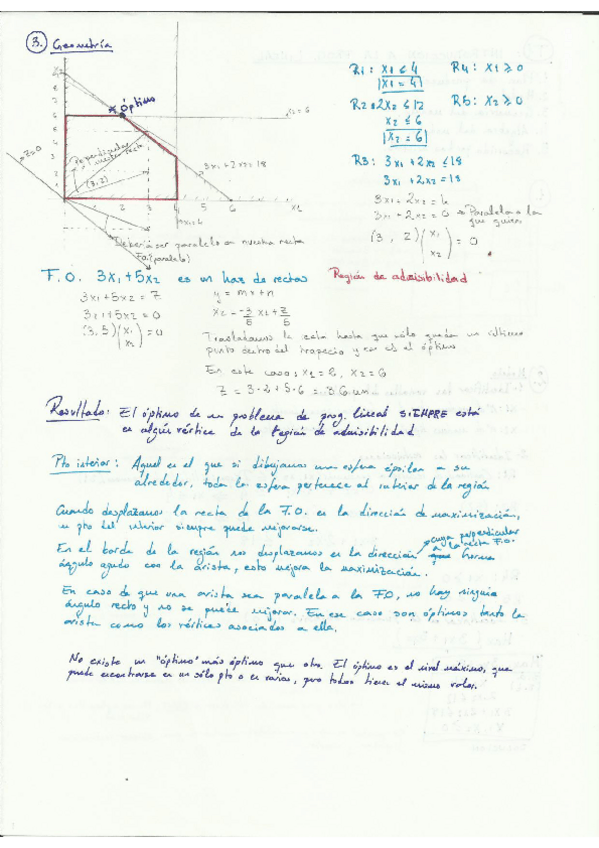 3. Geometría
R1: x1 ≤ 4
x1 = 4
R2: 2x2 ≤ 12
x2 ≤ 6
x2 = 6
R3: 3x1 + 2x2 ≤ 18
3x1 + 2x2 = 18
R4: x1 ≥ 0
R5: x2 ≥ 0
* óptimo
x2 = 6
z=0
(3,2)
3x1 + 2x2 = 18
2
3
4
6
x1
Debería ser paralelo a nuestra recta
F.O. (paralelo)
3x1 + 2x2 = k
3x1 + 2x2 = 0 → Paralela a la
que quiero
(3, 2) (x1 x2) = 0
F.O. 3x1 + 5x2 es un haz de rectas
Región de admisibilidad
3x1 + 5x2 = z
3x1 + 5x2 = 0
(3, 5) (x1 x2) = 0
y = mx + n
x2 = -3/5 x1 + z/5
Trasladamos la recta hasta que sólo queda un último
punto dentro del trapecio y ese es el óptimo
En este caso: x1 = 2, x2 = 6
z = 3·2 + 5·6 = 36 um
Resultado: El óptimo de un problema de prog. lineal SIEMPRE está
en algún vértice de la región de admisibilidad
Pto interior: Aquel en el que si dibujamos una esfera épsilon a su
alrededor, toda la esfera pertenece al interior de la región
Cuando desplazamos la recta de la F.O. en la dirección de maximización,
un pto del interior siempre puede mejorarse.
En el borde de la región nos desplazamos en la dirección cuya perpendicular
a la recta F.O. forma
ángulo agudo con la arista, esto mejora la maximización.
En caso de que una arista sea paralela a la F.O, no hay ningún
ángulo recto y no se puede mejorar. En ese caso son óptimos tanto la
arista como los vértices asociados a ella.
No existe un "óptimo" más óptimo que otro. El óptimo es el nivel máximo, que
puede encontrarse en un sólo pto o en varios, pero todos tienen el mismo valor.